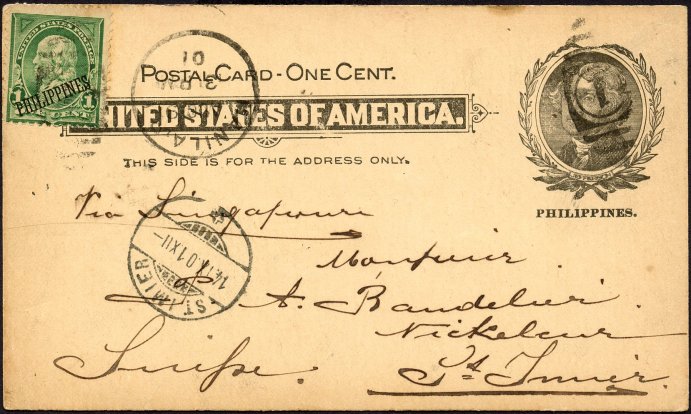 UNITED STATES POSTAGE
PHILIPPINES
1 CENT 1
MANILA
3 PM
01
POSTAL CARD - ONE CENT.
UNITED STATES OF AMERICA.
THIS SIDE IS FOR THE ADDRESS ONLY.
1
PHILIPPINES.
Via Singapoure
ST. IMIER
Monsieur
A. Bandelier
Nickeleur
St. Imier
Suisse.